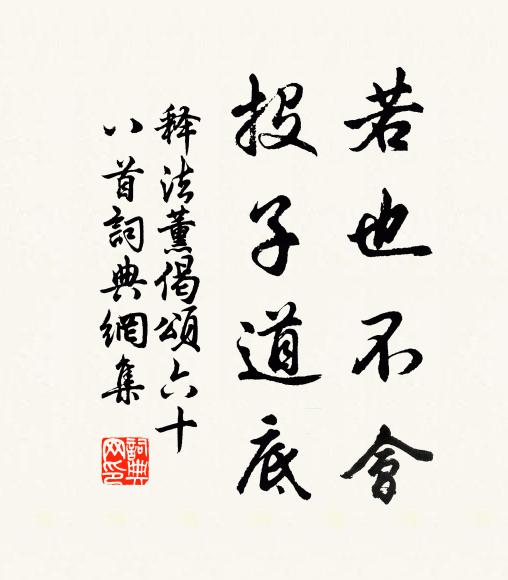 若也不會
投子道底
释法薰偈頌六十
八首詞典網集
詞典网印